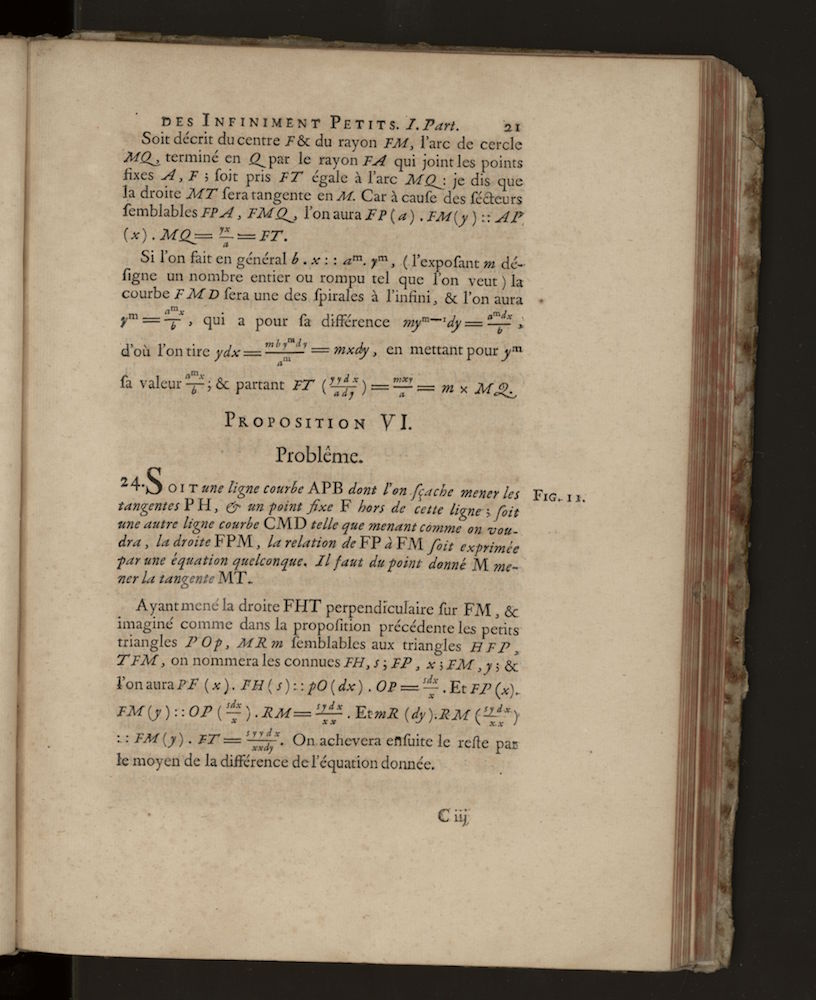 DES INFINIMENT PETITS. I. Part. 21
Soit décrit du centre F & du rayon FM, l'arc de cercle
MQ, terminé en Q par le rayon FA qui joint les points
fixes A, F ; ſoit pris FT égale à l'arc MQ : je dis que
la droite MT ſera tangente en M. Car à cauſe des ſécteurs
ſemblables FPA, FMQ, l'on aura FP (a) . FM (y) :: AP
(x) . MQ = yx/a = FT.
Si l'on fait en général b . x :: aᵐ. yᵐ, (l'expoſant m dé-
ſigne un nombre entier ou rompu tel que l'on veut) la
courbe FMD ſera une des ſpirales à l'infini, & l'on aura
yᵐ = aᵐx/b, qui a pour ſa différence myᵐ⁻¹dy = aᵐdx/b,
d'où l'on tire ydx = mbyᵐdy/aᵐ = mxdy, en mettant pour yᵐ
ſa valeur aᵐx/b ; & partant FT (yydx/ady) = mxy/a = m × MQ.
PROPOSITION VI.
Problême.
24. SOIT une ligne courbe APB dont l'on ſçache mener les
tangentes PH, & un point fixe F hors de cette ligne ; ſoit
une autre ligne courbe CMD telle que menant comme on vou-
dra, la droite FPM, la relation de FP à FM ſoit exprimée
par une équation quelconque. Il faut du point donné M me-
ner la tangente MT.
FIG. 12.
Ayant mené la droite FHT perpendiculaire ſur FM, &
imaginé comme dans la propoſition précédente les petits
triangles POp, MRm ſemblables aux triangles HFP,
TFM, on nommera les connues FH, s ; FP, x ; FM, y ; &
l'on aura PF (x). FH (s) :: pO (dx) . OP = sdx/x. Et FP (x).
FM (y) :: OP (sdx/x). RM = sydx/xx. Et mR (dy). RM (sydx/xx)
:: FM (y) . FT = syydx/xxdy. On achevera enſuite le reſte par
le moyen de la différence de l'équation donnée.
C iij